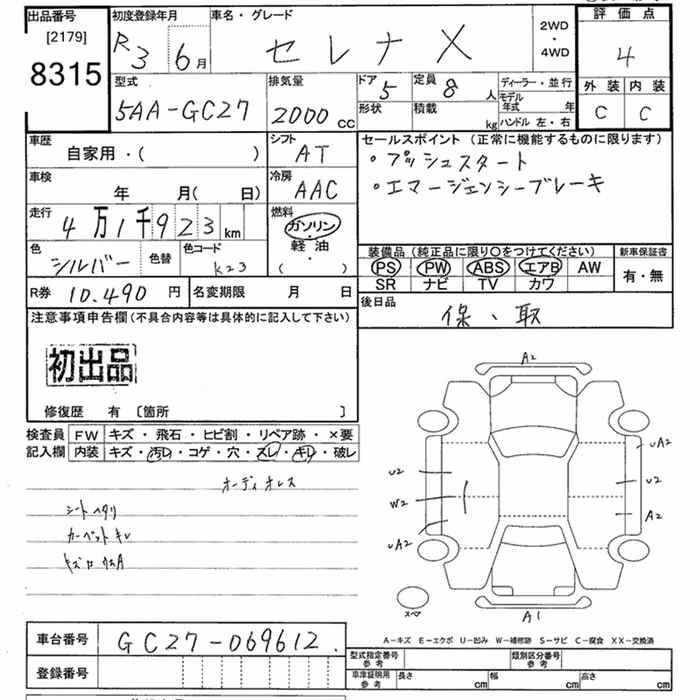 出品番号
[2179]
8315
初度登録年月
R3 6月
車名・グレード
セレナ X
2WD
・
4WD
評価点
4
外装 内装
C C
型式
5AA-GC27
排気量
2000 cc
ドア
5
形状
定員
8 人
積載
kg
ディーラー・並行
モデル年式 年
ハンドル 左・右
車歴
自家用・( )
シフト
AT
セールスポイント (正常に機能するものに限ります)
・プッシュスタート
・エマージェンシーブレーキ
車検
年 月( 日)
冷房
AAC
走行
4万1千923km
燃料
ガソリン
・
軽油
・
( )
色
シルバー
色替
色コード
K23
装備品 (純正品に限り○をつけてください)
PS PW ABS エアB AW
SR ナビ TV カワ
新車保証書
有・無
R券 10.490 円
名変期限 月 日
後日品
保、取
注意事項申告欄(不具合内容等は具体的に記入して下さい)
初出品
修復歴 有 [箇所 ]
検査員
記入欄
FW キズ・飛石・ヒビ割・リペア跡・×要
内装 キズ・汚レ・コゲ・穴・スレ・キレ・破レ
オーディオレス
シートヘタリ
カーペットキレ
A2
UA2
U2
U2
W2
A2
UA2
スペア
A1
A-キズ E-エクボ U-凹み W-補修跡 S-サビ C-腐食 XX-交換済
車台番号 GC27-069612.
登録番号
型式指定番号
参考
類別区分番号
参考
車庫証明用
参考
長さ cm 幅 cm 高さ cm